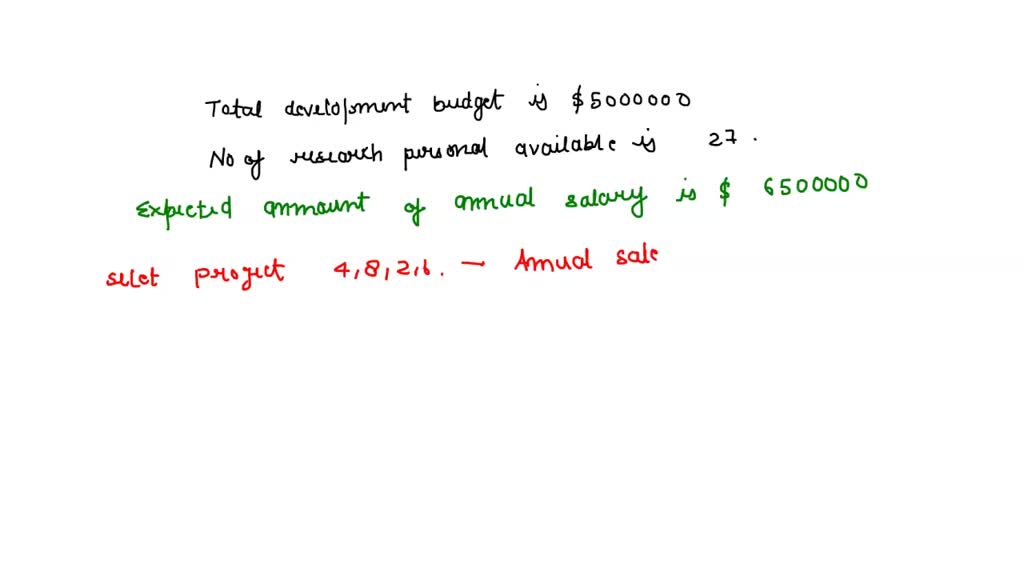 Total development budget is $5000000
No of research personal available is 27.
Expected ammount of annual salary is $ 6500000
selct project 4,8,2,6. - Annual sale